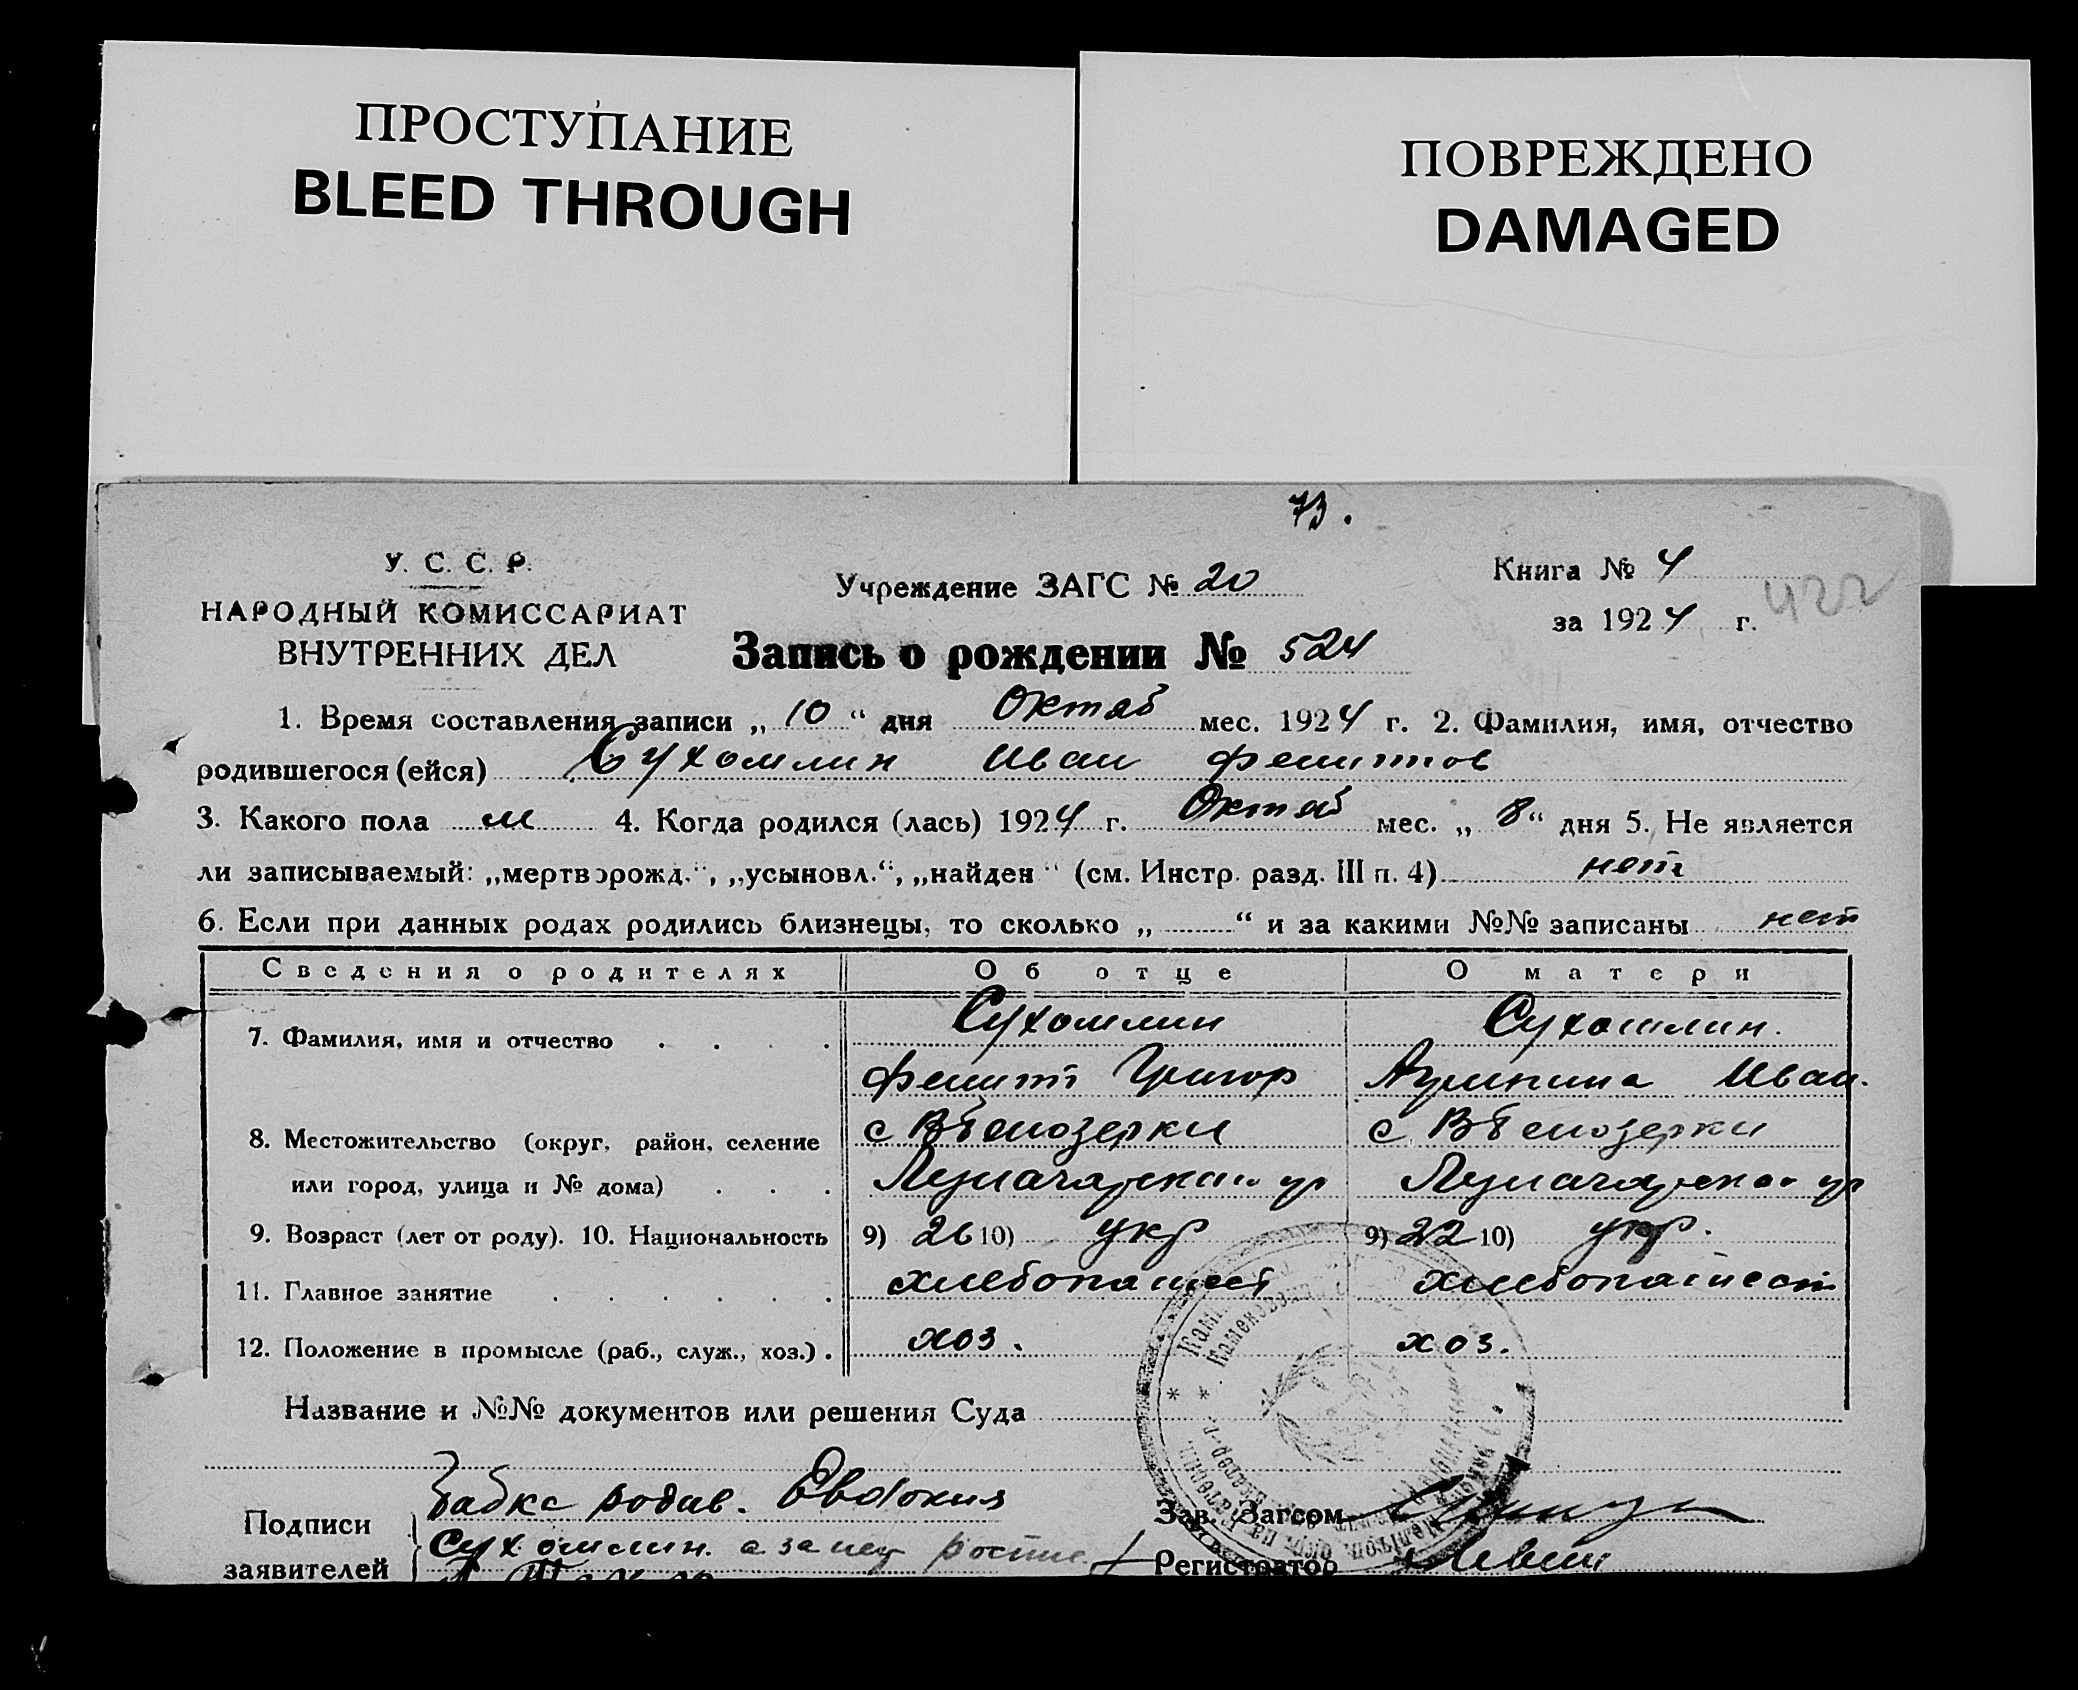 ПРОСТУПАНИЕ
BLEED THROUGH
ПОВРЕЖДЕНО
DAMAGED
73.
У. С. С. Р.
НАРОДНЫЙ КОМИССАРИАТ
ВНУТРЕННИХ ДЕЛ
Учреждение ЗАГС № 20
Книга № 4
за 1924 г.
422
Запись о рождении № 524
1. Время составления записи „ 10 “ дня Октяб мес. 1924 г. 2. Фамилия, имя, отчество
родившегося (ейся) Сухомлин Иван
3. Какого пола м 4. Когда родился (лась) 1924 г. Октяб мес. „ 8 “ дня 5. Не является
ли записываемый: „мертворожд.“, „усыновл.“, „найден“ (см. Инстр. разд. III п. 4) нет
6. Если при данных родах родились близнецы, то сколько „ “ и за какими №№ записаны нет
Сведения о родителях Об отце О матери
7. Фамилия, имя и отчество Сухомлин Сухомлин.
Григор Иван.
8. Местожительство (округ, район, селение с Вбелозерки с Вбелозерки
или город, улица и № дома) Луначарская ул Луначарская ул
9. Возраст (лет от роду). 10. Национальность 9) 26 10) укр 9) 22 10) укр.
11. Главное занятие хлебопашест хлебопашест
12. Положение в промысле (раб., служ., хоз.) хоз. хоз.
Название и №№ документов или решения Суда
Подписи
заявителей
Бабка родив. Евдокия
Сухомлин. а за нее
Зав. Загсом
Регистратор